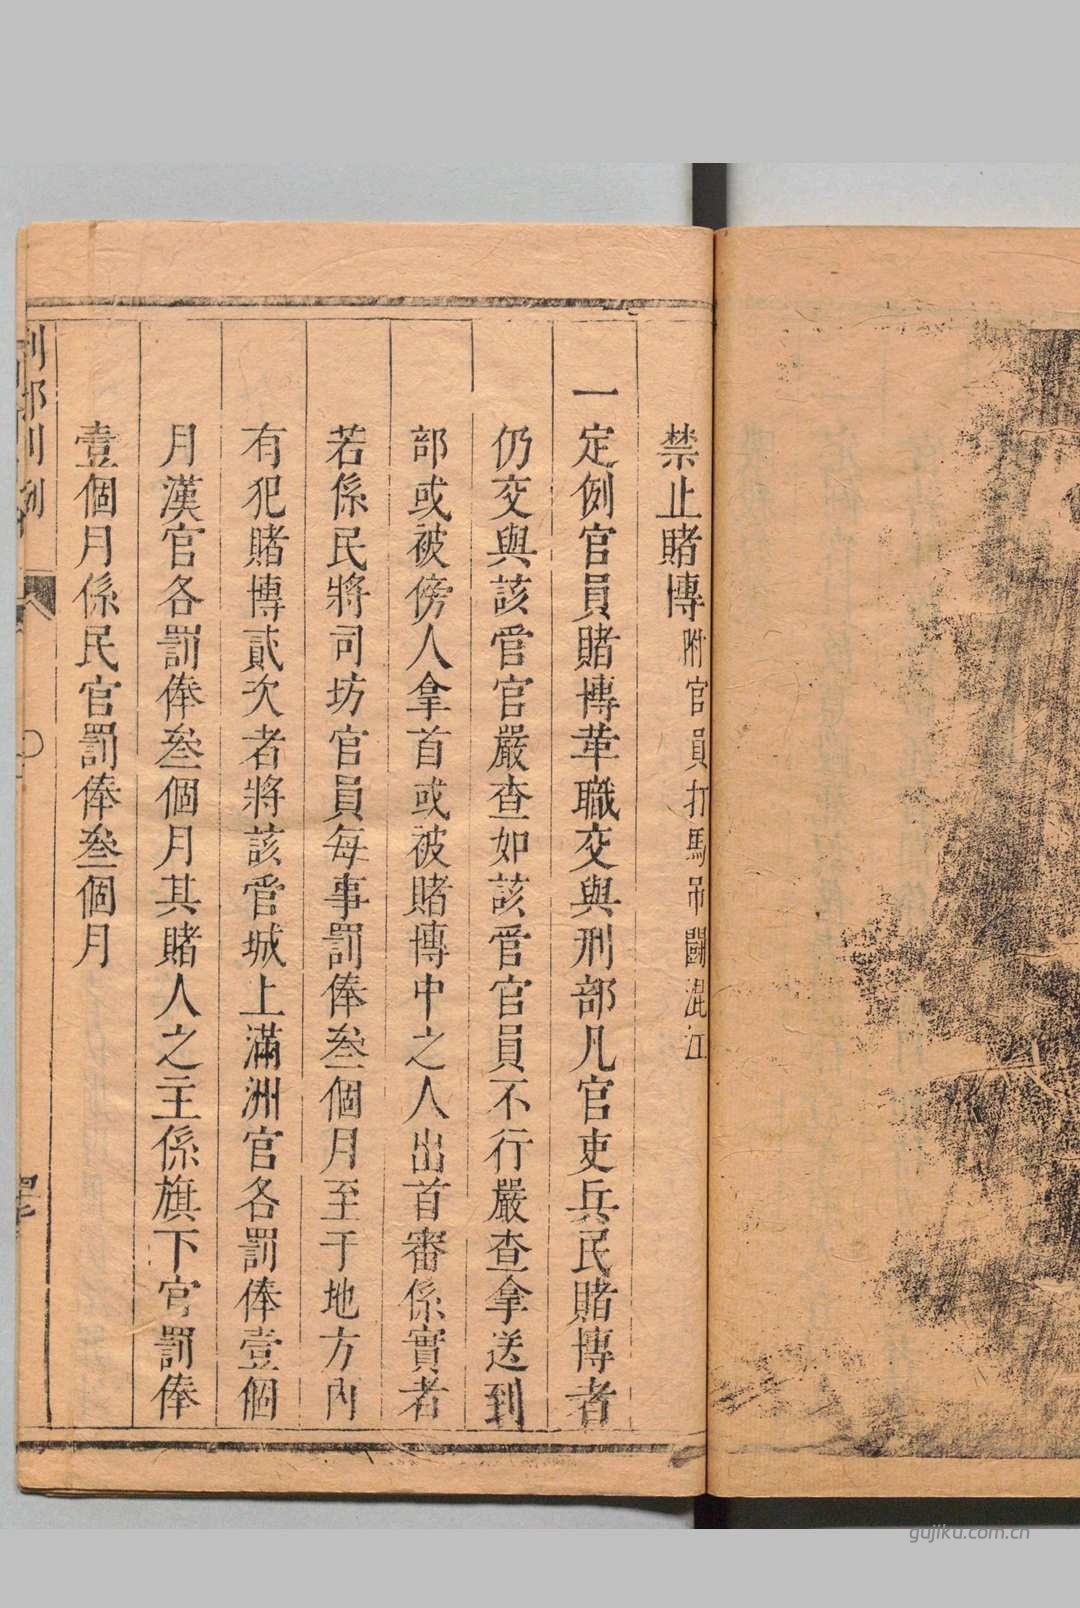 禁止賭博附官員打馬吊鬭混江
一定例官員賭博革職交與刑部凡官吏兵民賭博者
仍交與該管官嚴查如該管官員不行嚴查拿送到
部或被傍人拿首或被賭博中之人出首審係實者
若係民將司坊官員每事罰俸叁個月至于地方內
有犯賭博貳次者將該管城上滿洲官各罰俸壹個
月漢官各罰俸叁個月其賭人之主係旗下官罰俸
壹個月係民官罰俸叁個月
gujiku.com.cn